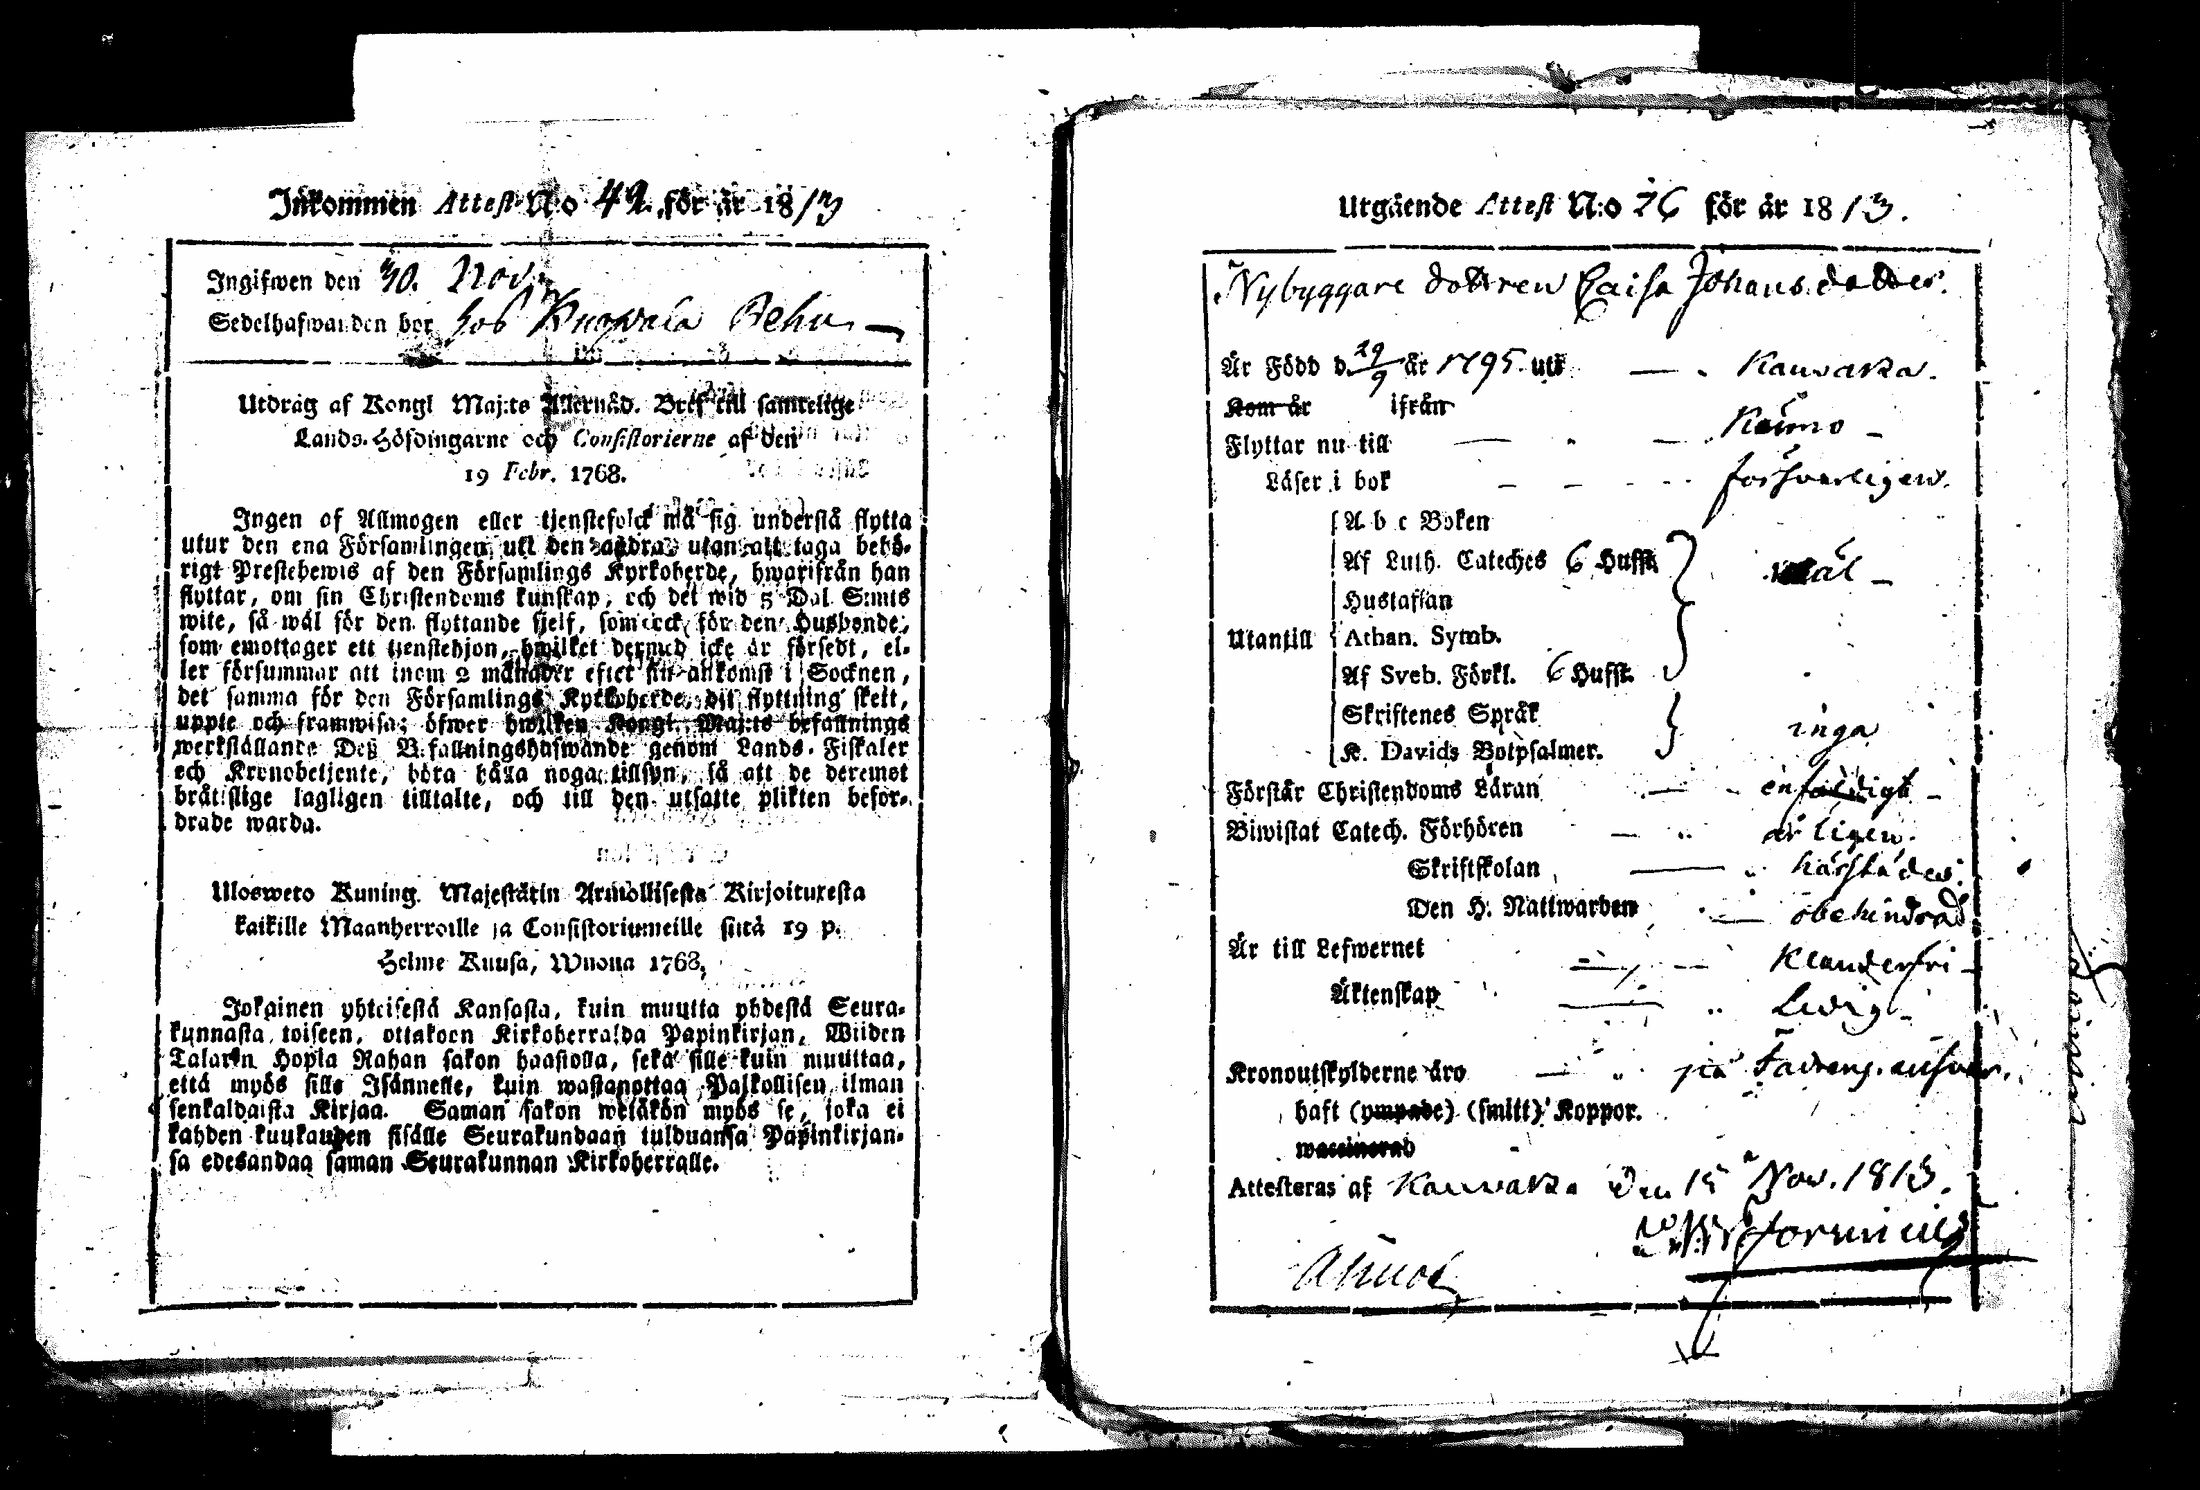 Inkommen Attest No 42. för år 1813
Ingifwen den 30. Nov.
Sedelhafwanden bor hos
Utdrag af Kongl Maj:ts Allernåd. Bref till samtelige
Lands-Höfdingarne och Consistorierne af den
19 Febr. 1768.
Ingen af Allmogen eller tjenstefolck må sig understå flytta
utur den ena Församlingen uti den andra, utan att taga behö-
rigt Prestebewis af den Församlings Kyrkoherde, hwarifrån han
flyttar, om sin Christendoms kunskap, och det wid 5 Dal. S:mts
wite, så wäl för den flyttande sjelf, som ock för den Husbonde,
som emottager ett tjenstehjon, hwilket dermed icke är försedt, el-
ler försummar att inom 2 månader efter sin ankomst i Socknen,
det samma för den Församlings Kyrkoherde, dit flyttning skett,
uppte och framwisa; öfwer hwilken Kongl. Maj:ts befallnings
werkställande Deß Befallningshafwande genom Lands-Fiskaler
och Kronobetjente, böra hålla noga tillsyn, så att de deremot
bråtslige lagligen tilltalte, och till den utsatte plikten befor-
drade warda.
Ulosweto Kuning. Majestätin Armollisesta Kirjoituxesta
kaikille Maanherroille ja Consistoriumeille siitä 19 p.
Helme Kuusa, Wuona 1768.
Jokainen yhteisestä Kansasta, kuin muutta yhdestä Seura-
kunnasta toiseen, ottakoon Kirkoherralda Papinkirjan, Wiiden
Talarin Hopia Rahan sakon haastolla, sekä sille kuin muuttaa,
että myös sille Isännelle, kuin wastanottaa Palkollisen ilman
senkaldaista Kirjaa. Saman sakon wetäkön myös se, joka ei
kahden kuukauden sisälle Seurakundaan tulduansa Papinkirjan-
sa edesandaa saman Seurakunnan Kirkoherralle.
Utgående Attest N:o 26 för år 1813.
Nybyggare dottren Caisa Johansdotter.
Är Född d. 29/9 år 1795 uti — Kauvaka.
Kom år ifrån
Flyttar nu till — Kaumo
Läser i bok — försvarligen.
A b c Boken
Af Luth. Cateches 6 Hufst. wäl
Hustaflan
Utantill Athan. Symb.
Af Sveb. Förkl. 6 Hufst.
Skriftenes Språk
K. Davids Botpsalmer. inga
Förstår Christendoms Läran — enfaldigt
Biwistat Catech. Förhören — årligen.
Skriftskolan — härstädes.
Den H. Nattwarden — obehindrad
Är till Lefwernet — klanderfri
Äktenskap — Ledig
Kronoutskylderne äro — på Fadrens ansvar.
haft (ympade) (smitt) Koppor.
waccinerad
Attesteras af Kauvaka den 15 Nov. 1813.